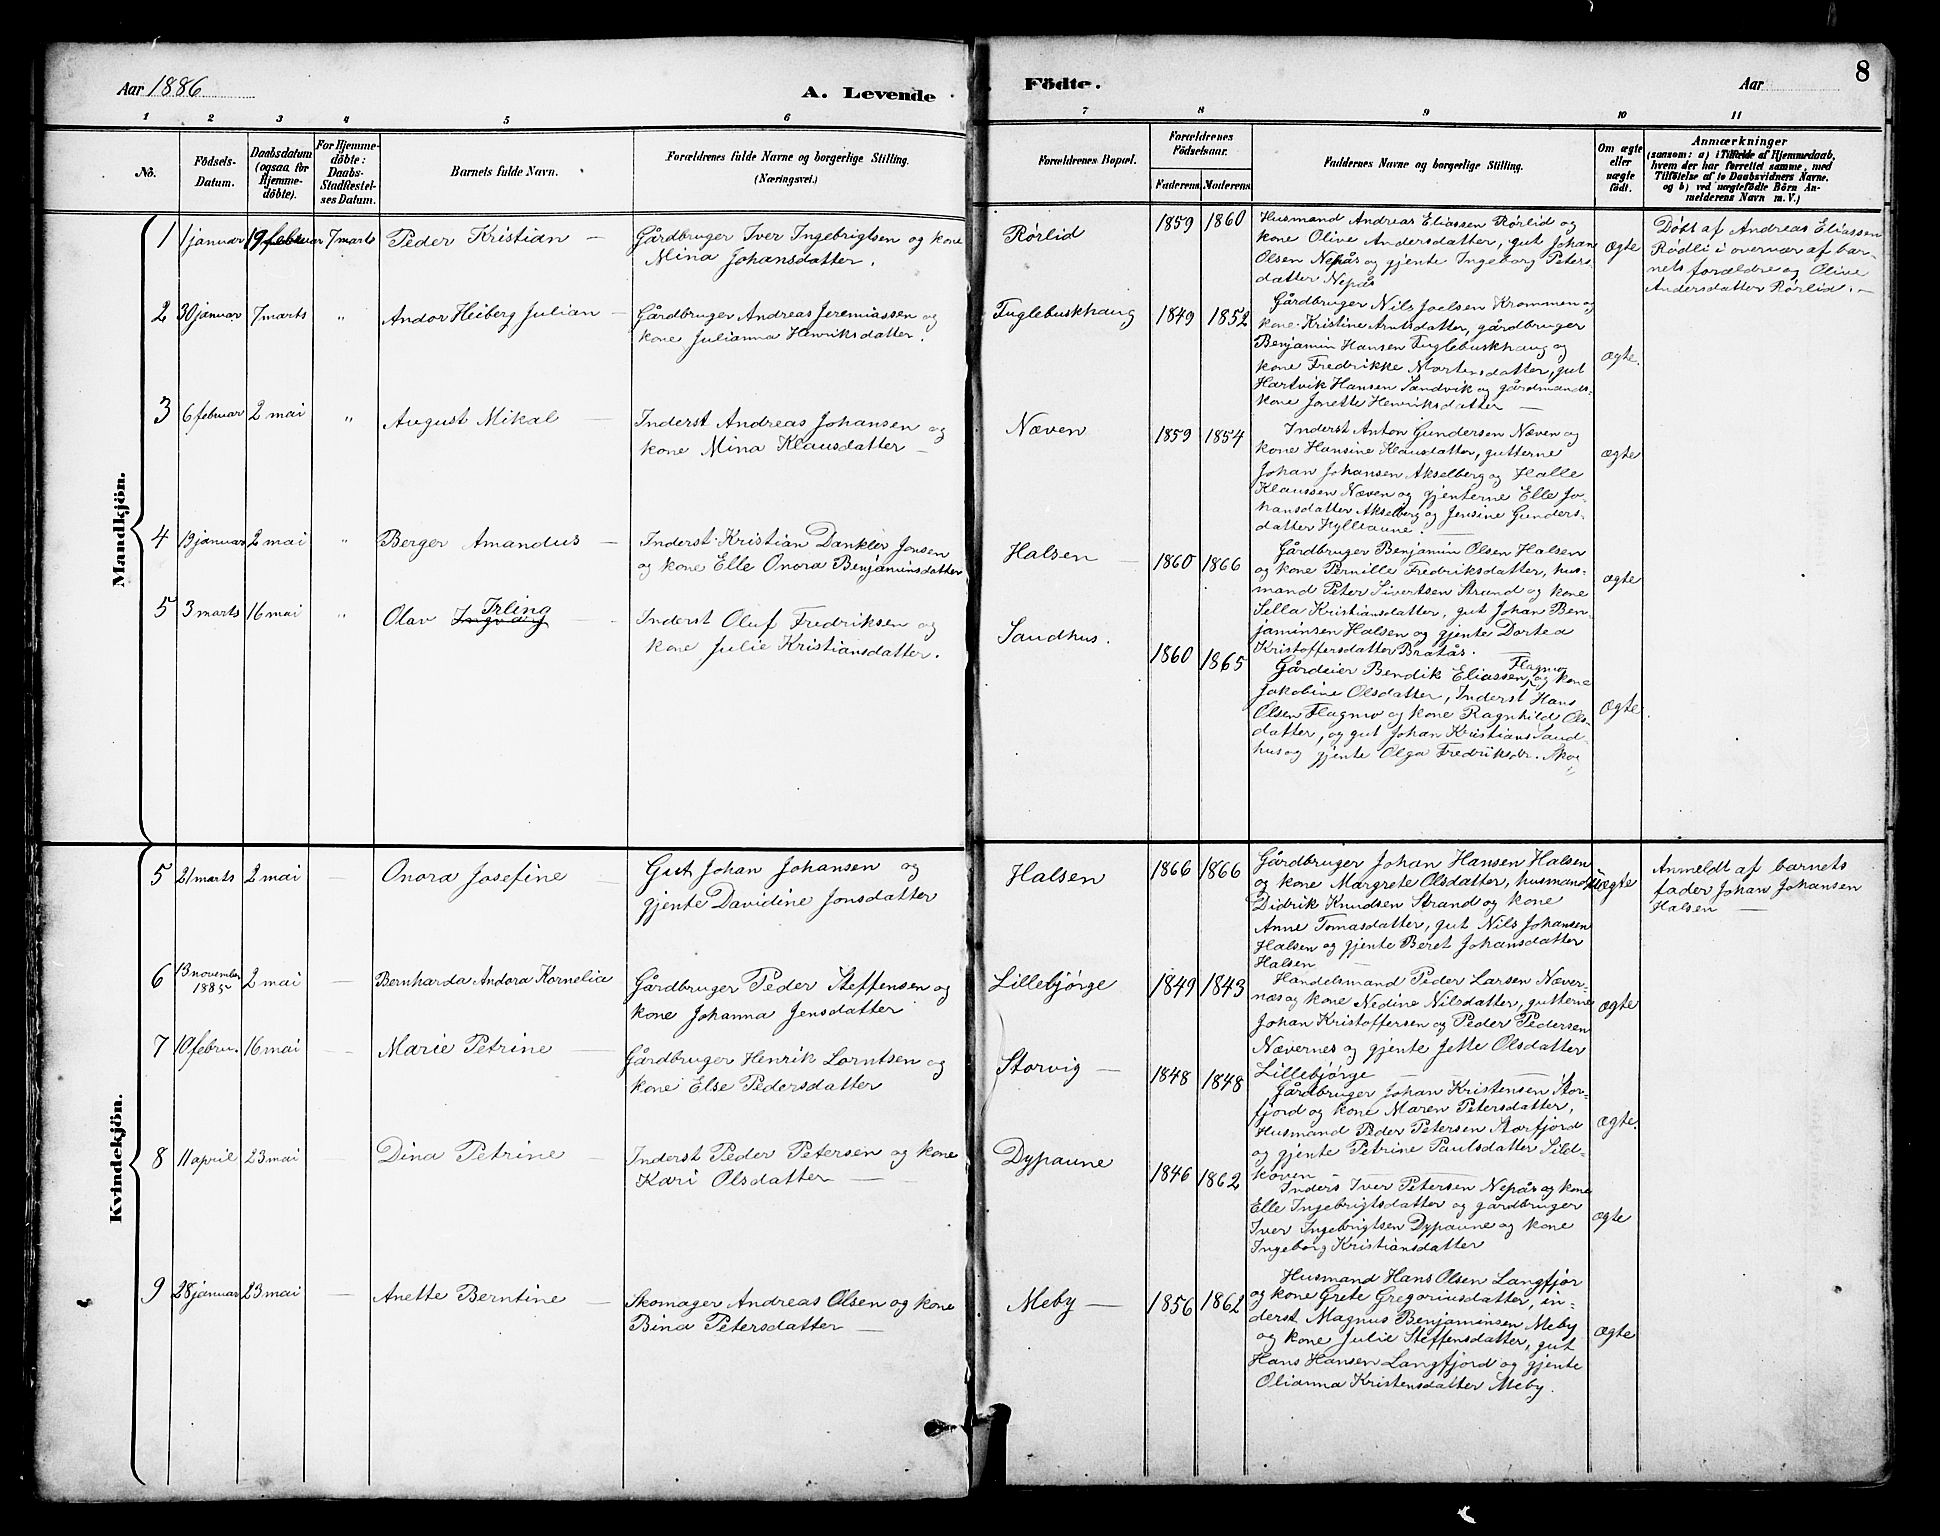 Aar 1886
A. Levende
Födte.
Aar
8
1 2 3 4 5 6 7 8 9 10 11
No.
Födsels-
Datum.
Daabsdatum
(ogsaa for
Hjemme-
döbte).
For Hjemme-
döbte:
Daabs-
Stadfæstel-
ses Datum.
Barnets fulde Navn.
Forældrenes fulde Navne og borgerlige Stilling.
(Næringsvei.)
Forældrenes Bopæl.
Forældrenes
Födselsaar.
Faderens Moderens
Faddernes Navne og borgerlige Stilling.
Om ægte
eller
uægte
födt.
Anmærkninger
(saasom: a) i Tilfælde af Hjemmedaab,
hvem der har forrettet samme, med
Tilföielse af to Daabsvidners Navne.
og b) ved uægtefödte Börn An-
melderens Navn m. V.)
Mandkjön.
1 1 januar 19 februar 7 marts Peder Kristian –
Gårdbruger Iver Ingebrigtsen og kone
Mina Johansdatter.
Rørlid
1859 1860
Husmand Andreas Eliassen Rørlid og
kone Olive Andersdatter, gut Johan
Olsen Nepås og gjente Ingeborg Peters-
datter Nepås
ægte
Døbt af Andreas Eliassen
Rødli i overvær af bar-
nets forældre og Olive
Andersdatter Rørlid. –
2 30 januar 7 marts " Andor Heiberg Julian –
Gårdbruger Andreas Jeremiassen og
kone Julianna Henriksdatter.
Fuglebuskhaug
1849 1852
Gårdbruger Nils Joelsen Krommen og
kone Kristine Arntsdatter, gårdbruger
Benjamin Hansen Fuglebuskhaug og
kone Fredrikke Mortensdatter, gut
Hartvik Hansen Sandvik og gårdmands-
kone Jonette Henriksdatter –
ægte.
3 6 februar 2 mai " August Mikal –
Inderst Andreas Johansen og
kone Mina Klausdatter –
Næven
1859 1854
Inderst Anton Gundersen Næven og
kone Hansine Klausdatter, gutterne
Johan Johansen Akselberg og Halle
Klaussen Næven og gjenterne Elle Jo-
hansdatter Akselberg og Jensine Gunders-
datter Hylleaune. –
ægte
4 19 januar 2 mai " Berger Amandus –
Inderst Kristian Dankler Jonsen
og kone Elle Onora Benjaminsdatter
Halsen –
1860 1866
Gårdbruger Benjamin Olsen Halsen
og kone Pernille Fredriksdatter, hus-
mand Peter Sivertsen Strand og kone
Sella Kristiansdatter, gut Johan Ben-
jaminsen Halsen og gjente Dortea
Kristoffersdatter Bratås. –
ægte
5 3 marts 16 mai " Olav Ingvang Irling –
Inderst Oluf Fredriksen og
kone Julie Kristiansdatter.
Sandhus.
1860 1865
Gårdeier Bendik Eliassen Flagmo og kone
Jakobine Olsdatter, Inderst Hans
Olsen Flagmo og kone Ragnhild Ols-
datter, og gut Johan Kristians Sand-
hus og gjente Olga Fredriksdr.
ægte
Kvindekjön.
5 21 marts 2 mai – Onora Josefine –
Gut Johan Johansen og
gjente Davidine Jonsdatter
Halsen
1866 1866
Gårdbruger Johan Hansen Halsen
og kone Margrete Olsdatter, husmand
Didrik Knudsen Strand og kone
Anne Tomasdatter, gut Nils Johansen
Halsen og gjente Beret Johansdatter
Halsen –
uægte
Anmeldt af barnets
fader Johan Johansen
Halsen –
6 13 november 1885 2 mai – Bernharda Andora Kornelia
Gårdbruger Peder Steffensen og
kone Johanna Jensdatter
Lillebjørge
1849 1843
Handelsmand Peder Larsen Næver-
næs og kone Nedine Nilsdatter, gutterne
Johan Kristoffersen og Peder Pedersen
Nævernes og gjente Jette Olsdatter
Lillebjørge –
ægte
7 10 febru. 16 mai – Marie Petrine –
Gårdbruger Henrik Lorntsen og
kone Else Pedersdatter
Storvig –
1848 1848
Gårdbruger Johan Kristensen Stor-
fjord og kone Maren Petersdatter,
Husmand Peder Petersen Storfjord
og gjente Petrine Paulsdatter Sild-
koven –
ægte.
8 11 april 23 mai – Dina Petrine –
Inderst Peder Petersen og kone
Kari Olsdatter –
Dypaune
1846 1862
Inders Iver Petersen Nepås og kone
Elle Ingebrigtsdatter og gårdbruger
Iver Ingebrigtsen Dypaune og kone
Ingeborg Kristiansdatter
ægte
9 28 januar 23 mai – Anette Berntine –
Skomager Andreas Olsen og kone
Bina Petersdatter –
Meby –
1856 1862
Husmand Hans Olsen Langfjor
og kone Grete Gregoriusdatter, in-
derst Magnus Benjaminsen Meby
og kone Julie Steffensdatter, gut
Hans Hansen Langfjord og gjente
Olianna Kristensdatter Meby.
ægte